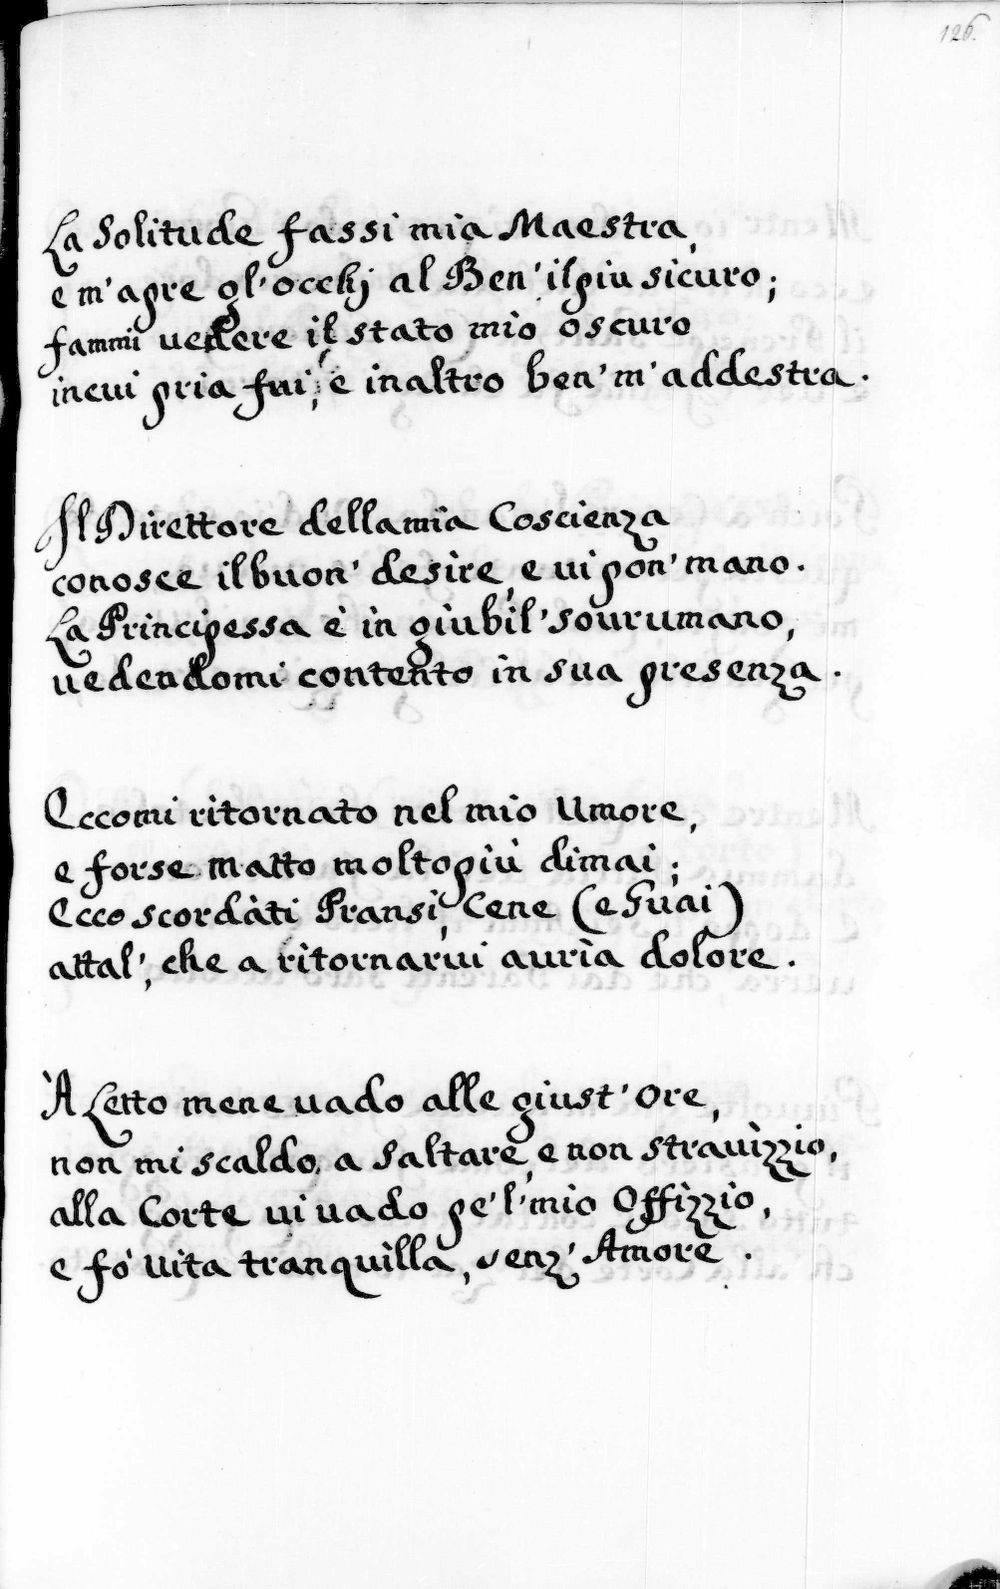 126.
La Solitude fassi mia Maestra,
e m'apre gl'occhj al Ben' il piu sicuro;
fammi vedere il stato mio oscuro
in cui pria fui; e in altro ben' m'addestra.
Il Direttore della mia Coscienza
conosce il buon' desire, e vi pon' mano.
La Principessa è in giubil' sourumano,
uedendomi contento in sua presenza.
Eccomi ritornato nel mio Umore,
e forse matto molto più di mai;
Ecco scordàti Pransi, Cene (e Guai)
attal', che a ritornarui aurìa dolore.
À Letto mene uado alle giust' ore,
non mi scaldo, a saltare, e non strauizzio,
alla Corte ui uado pe'l' mio Offizzio,
e fò uita tranquilla, senz' Amore.